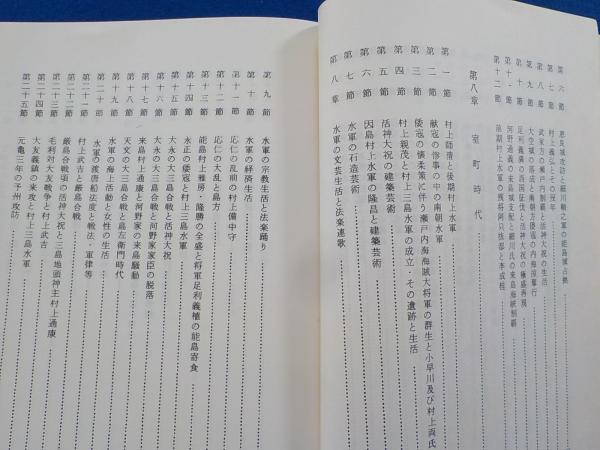 第六節 恵良城攻防と細川勢之軍の能島軍占拠
第七節 村上義弘とその歿年
第八節 武家方の瀬戸内制覇と活神大祝の生活
第九節 大空城の落城と南朝方倭寇の内海掠奪行
第十節 足利義満の西国征伐と活神大祝の極盛再現
第十一節 河野通義の来島域支配と細川氏の来島海峡制覇
第十二節 前期村上水軍の残将阿只抜都と李成桂
第八章 室町時代
第一節 村上師清と後期村上水軍
第二節 献寇の惨事の中の南朝水軍
第三節 倭寇の懐柔策に伴う瀬戸内海海賊大将軍の群生と小早川及び村上両氏
第四節 村上親茂と村上三島水軍の成立、その遺跡と生活
第五節 活神大祝の建築芸術
第六節 因島村上水軍の隆昌と建築芸術
第七節 水軍の石造芸術
第八章 水軍の文芸生活と法楽連歌
第九節 水軍の宗教生活と法楽踊り
第十節 水軍の経済生活
第十一節 応仁の乱前の村上備中守
第十二節 応仁の大乱と島方
第十三節 能島村上雅房・隆勝の全盛と将軍足利義植の能島寄食
第十四節 永正の倭寇と村上三島水軍
第十五節 大永の大三島合戦と活神大祝
第十六節 大永の大三島合戦と河野家家臣の脱落
第十七節 来島村上通康と河野家の来島騒動
第十八節 天文の大三島合戦と島左衛門時代
第十九節 水軍の海上活動と女性の生活
第二十節 水軍の渡唐船法度と戦法・軍律等
第二十一節 村上武吉と厳島合戦
第二十二節 厳島合戦頃の活神大祝と三島地頭神主村上通康
第二十三節 毛利対大友戦争と村上武吉
第二十四節 大友義鎮の来攻と村上三島水軍
第二十五節 元亀三年の予州攻防